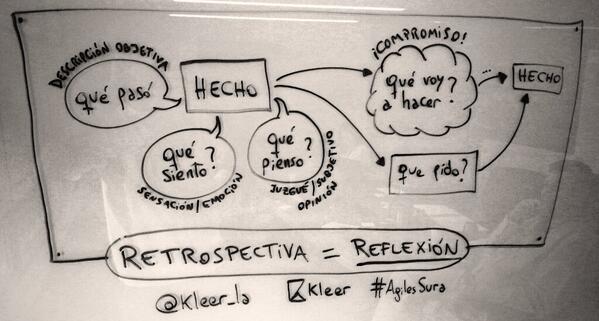 DESCRIPCIÓN OBJETIVA
qué pasó
HECHO
qué
siento?
SENSACIÓN/EMOCIÓN
qué
pienso?
OPINIÓN
¡COMPROMISO!
qué voy
a hacer?
...
que pido?
HECHO
RETROSPECTIVA = REFLEXIÓN
@Kleer_la
Kleer
#AgilesSura